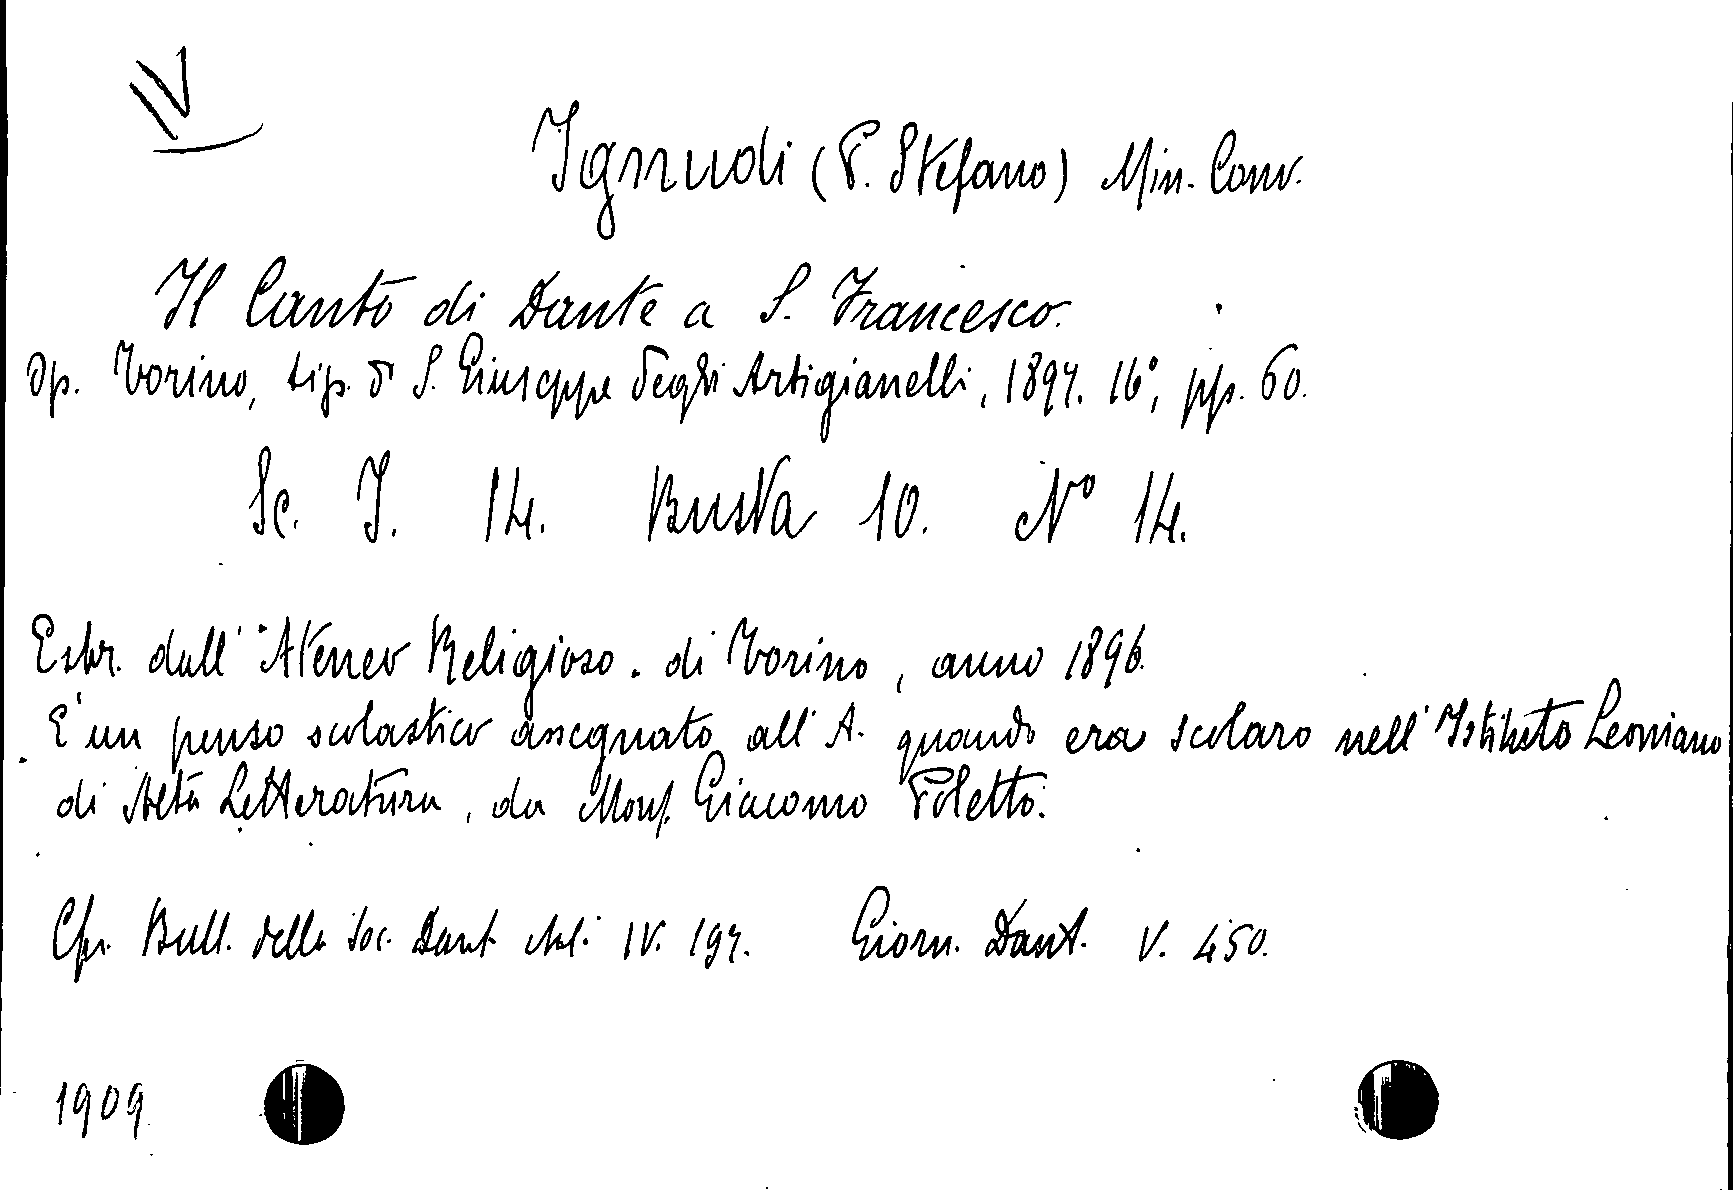 IV
Ignudi (P. Stefano) Min. Conv.
Il Canto di Dante a S. Francesco.
Op. Torino, tip. di S. Giuseppe degli Artigianelli, 1897. 16°, pp. 60.
Sc. I. 14. Busta 10. N° 14.
Estr. dall' Ateneo Religioso. di Torino, anno 1896.
E' un penso scolastico assegnato all' A. quando era scolaro nell' Istituto Leoniano
di Alta Letteratura, da Mons. Giacomo Poletto.
Cfr. Bull. della Soc. Dant. Ital. IV. 197. Giorn. Dant. V. 450.
1909